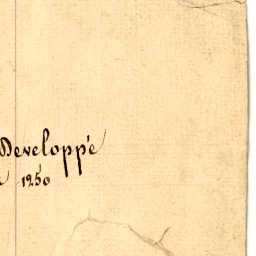 Developpé
1250